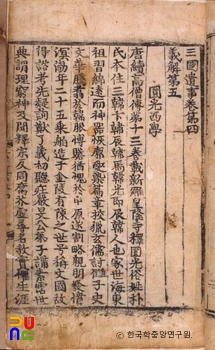 三國遺事卷第四
義解第五
圓光西學
唐續高僧傳第十三卷載新羅皇隆寺釋圓光俗姓朴
氏本住三韓卞韓辰韓馬韓光即辰韓人也家世海東
祖習綿遠而神器恢廓愛染篇章挍獵玄儒討讎子史
文華騰翥於韓服博贍猶愧於中原遂割略親朋發憤
溟渤年二十五乘舶造于金陵有陳之世号稱文國故
得諮考先疑詢猷了義初聽莊嚴旻公弟子講素霑世
典謂理窮神及聞釋宗反同腐芥虛尋名教實懼生涯
ⓒ 한국학중앙연구원